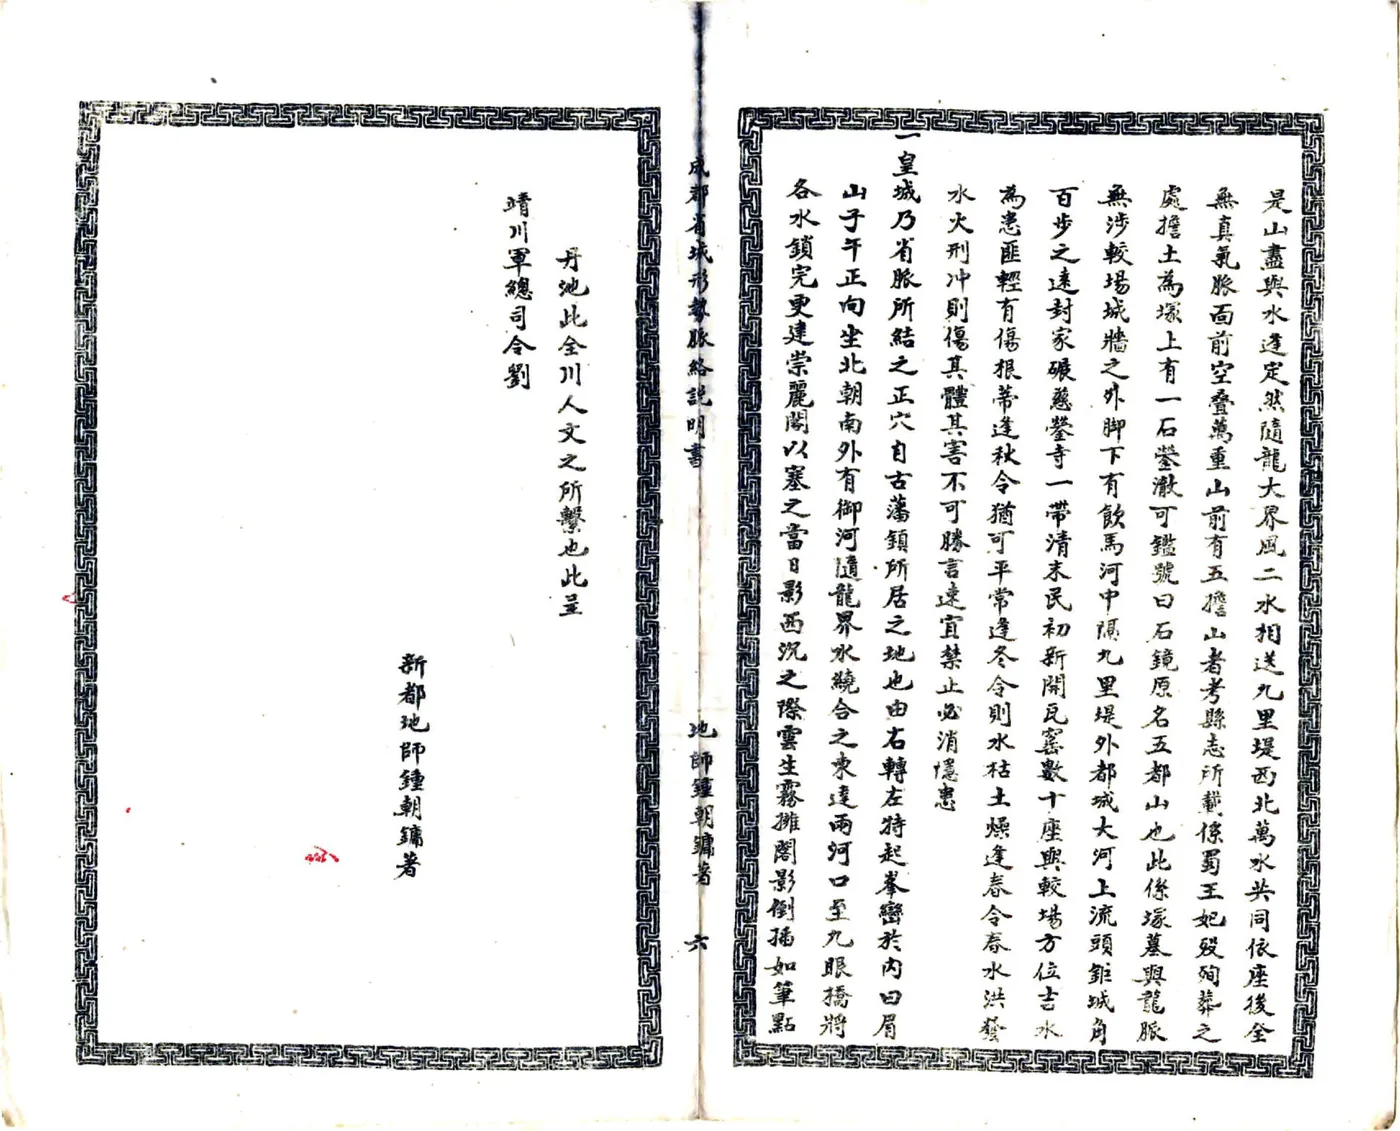 是山盡與水逢定然隨龍大界風二水相送九里堤西北萬水共同依座後全
無真氣脈面前空疊萬重山前有五擔山者考縣志所載係蜀王妃歿殉葬之
處擔土為塚上有一石瑩澈可鑑號曰石鏡原名五都山也此係塚墓與龍脈
無涉較場城牆之外脚下有飲馬河中隔九里堤外都城大河上流頭鉅城角
百步之遠封家碾慈瑩寺一帶清末民初新開瓦窰數十座與較場方位吉水
為患匪輕有傷根蒂逢秋令猶可平常逢冬令則水枯土燥逢春令春水洪發
水火刑冲則傷其體其害不可勝言速宜禁止必消隱患
一皇城乃省脈所結之正穴自古藩鎮所居之地也由右轉左特起峯巒於內曰眉
山子午正向坐北朝南外有御河隨龍界水繞合之東達兩河口至九眼橋將
各水鎖完更建崇麗閣以塞之當日影西沉之際雲生霧擁閣影倒插如筆點
成都省城形勢脈絡説明書
地師鍾朝鏞著
六
丹池此全川人文之所繫也此呈
靖川軍總司令劉
新都地師鍾朝鏞著